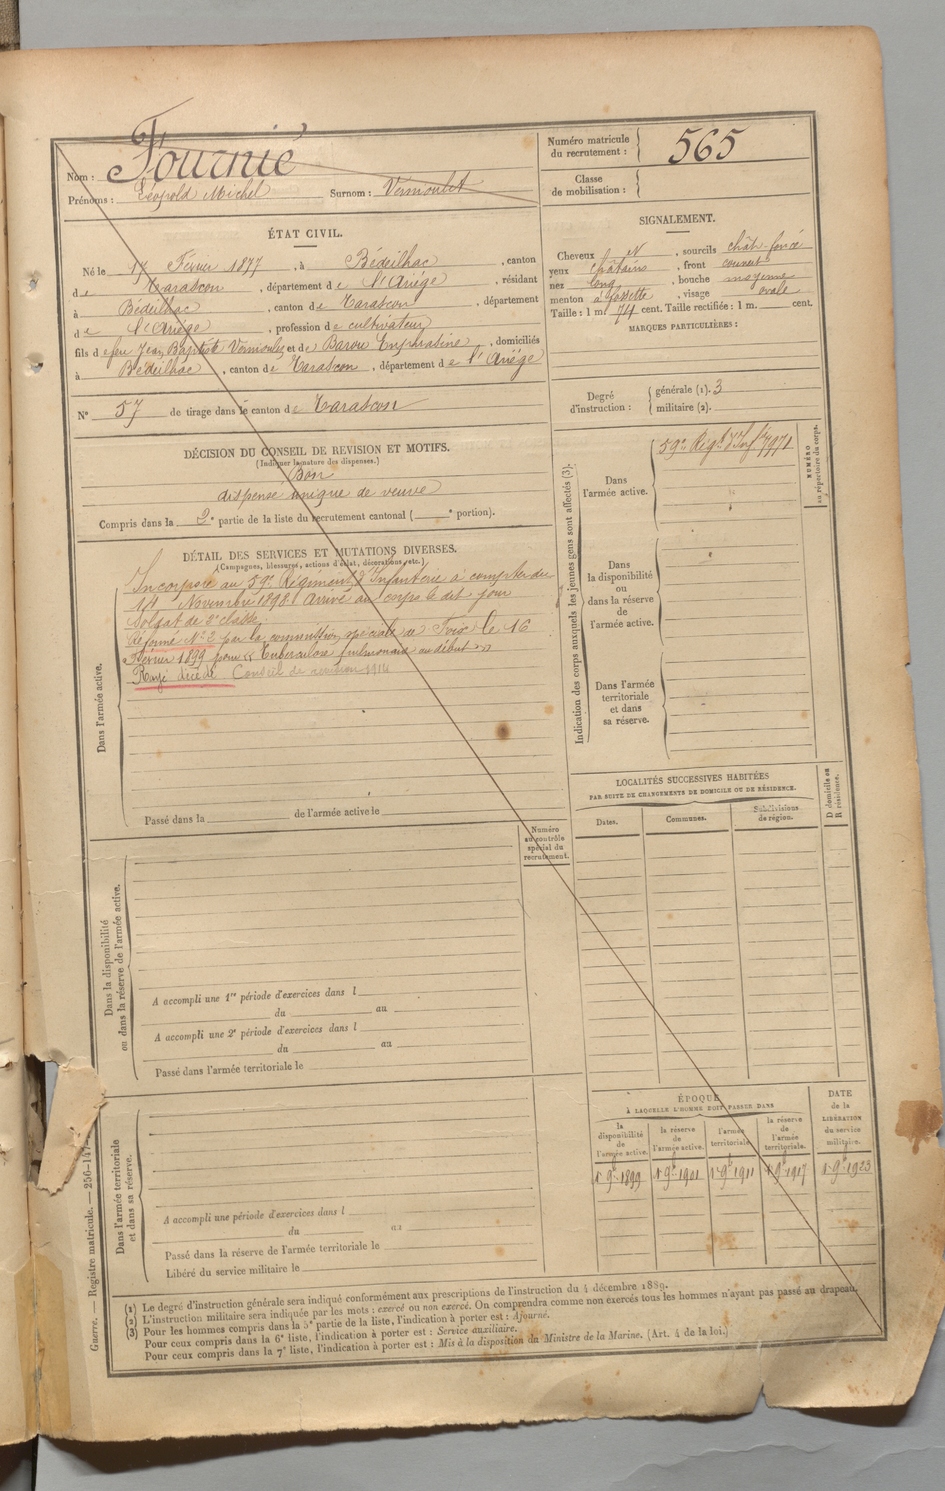 Nom : Fournié
Prénoms : Léopold Michel Surnom : Vermoulet
Numéro matricule du recrutement : 565
Classe de mobilisation :
ÉTAT CIVIL.
Né le 17 Février 1877, à Bédeilhac, canton
de Tarascon, département de l'Ariége, résidant
à Bédeilhac, canton de Tarascon, département
de l'Ariége, profession de cultivateur
fils de feu Jean Baptiste et de Barou, domiciliés
à Bédeilhac, canton de Tarascon, département de l'Ariége
N° 57 de tirage dans le canton de Tarascon
SIGNALEMENT.
Cheveux N, sourcils chât-foncé
yeux châtains, front couvert
nez long, bouche moyenne
menton à fossette, visage ovale
Taille : 1 m. 74 cent. Taille rectifiée : 1 m. cent.
MARQUES PARTICULIÈRES :
Degré d'instruction : générale (1). 3
militaire (2).
DÉCISION DU CONSEIL DE REVISION ET MOTIFS.
(Indiquer la nature des dispenses.)
Bon
dispensé unique de veuve
Compris dans la 2e partie de la liste du recrutement cantonal ( e portion).
DÉTAIL DES SERVICES ET MUTATIONS DIVERSES.
(Campagnes, blessures, actions d'éclat, décorations, etc.)
Dans l'armée active.
Incorporé au 59e Régiment d'Infanterie à compter du
14 Novembre 1898. Arrivé au corps le dit jour
Soldat de 2e classe.
Réformé N° 2 par la commission spéciale de Foix le 16
Février 1899 pour « Tuberculose pulmonaire au début »
Rayé décédé Conseil de revision 1914
Passé dans la de l'armée active le
Numéro au contrôle spécial du recrutement.
Dans la disponibilité ou dans la réserve de l'armée active.
A accompli une 1re période d'exercices dans l
du au
A accompli une 2e période d'exercices dans l
du au
Passé dans l'armée territoriale le
Dans l'armée territoriale et dans sa réserve.
A accompli une période d'exercices dans l
du au
Passé dans la réserve de l'armée territoriale le
Libéré du service militaire le
Indication des corps auxquels les jeunes gens sont affectés (3).
Dans l'armée active.
59e Régt d'Inft 7971
NUMÉRO au répertoire du corps.
Dans la disponibilité ou dans la réserve de l'armée active.
Dans l'armée territoriale et dans sa réserve.
LOCALITÉS SUCCESSIVES HABITÉES
PAR SUITE DE CHANGEMENTS DE DOMICILE OU DE RÉSIDENCE.
Dates. Communes. Subdivisions de région.
D domicile ou R résidence.
ÉPOQUE
À LAQUELLE L'HOMME DOIT PASSER DANS
la disponibilité de l'armée active.
la réserve de l'armée active.
l'armée territoriale.
la réserve de l'armée territoriale.
DATE de la LIBÉRATION du service militaire.
1 9b 1899 1 9b 1901 1 9b 1911 1 9b 1917 1 9b 1923
(1) Le degré d'instruction générale sera indiqué conformément aux prescriptions de l'instruction du 4 décembre 1889.
(2) L'instruction militaire sera indiquée par les mots : exercé ou non exercé. On comprendra comme non exercés tous les hommes n'ayant pas passé au drapeau.
(3) Pour les hommes compris dans la 5e partie de la liste, l'indication à porter est : Ajourné.
Pour ceux compris dans la 6e liste, l'indication à porter est : Service auxiliaire.
Pour ceux compris dans la 7e liste, l'indication à porter est : Mis à la disposition du Ministre de la Marine. (Art. 4 de la loi.)
Guerre. — Registre matricule. — 256-147-